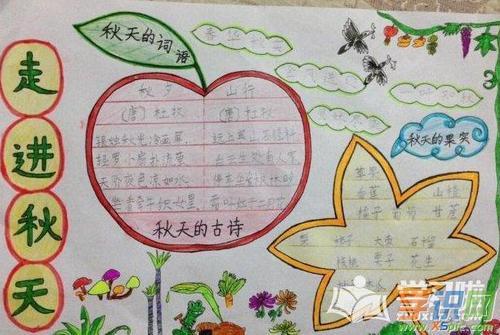 走进秋天
秋天的词语
春华秋实
一叶知秋
秋天的果实
秋夕 山行
(唐)杜牧 (唐)杜牧
银烛秋光冷画屏 远上寒山石径斜
轻罗小扇扑流萤 白云生处有人家
天阶夜色凉如水 停车坐爱枫林晚
坐看牵牛织女星 霜叶红于二月花
秋天的古诗
苹果
香蕉 山楂
橘子 甘蔗
梨 柿子 大枣 石榴
核桃 栗子 花生
木瓜
学识啦